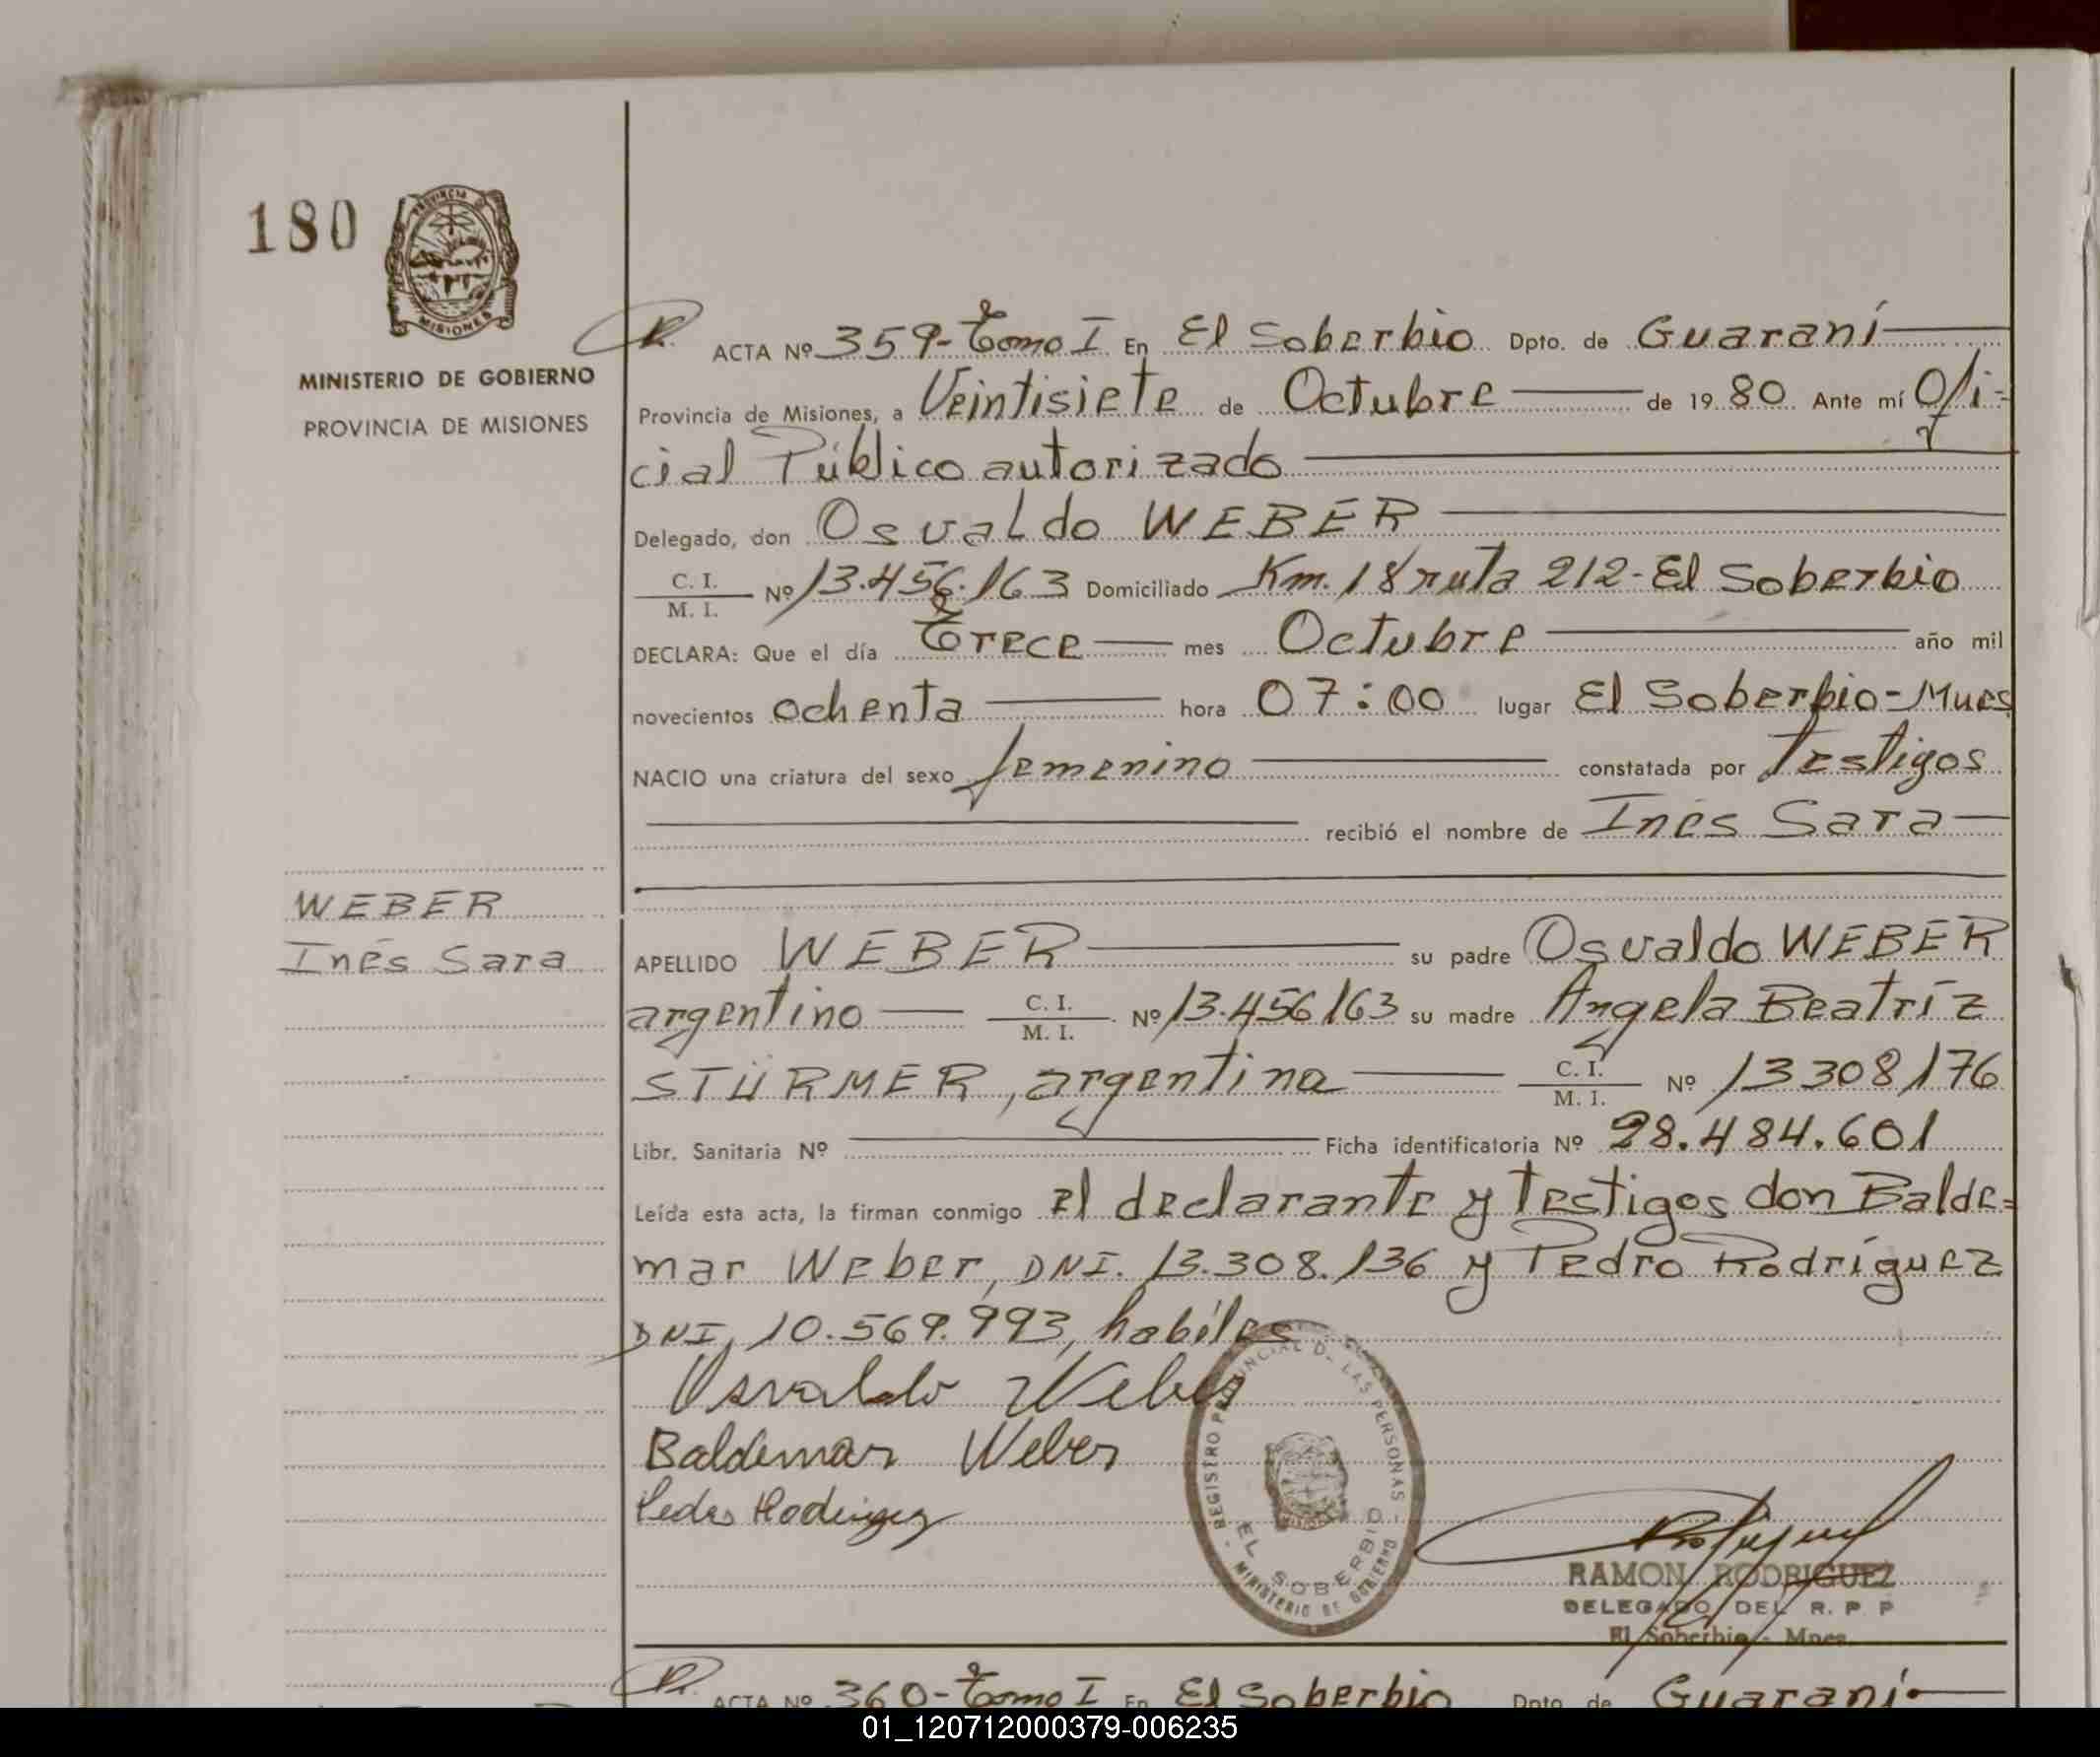 180
PROVINCIA DE
MISIONES
MINISTERIO DE GOBIERNO
PROVINCIA DE MISIONES
ACTA Nº 359-Tomo I En El Soberbio Dpto. de Guaraní
Provincia de Misiones, a Veintisiete de Octubre de 1980 Ante mí Ofi=
cial Público autorizado
Delegado, don Osvaldo WEBER
C. I.
M. I. Nº 13.456.163 Domiciliado Km. 18 ruta 212-El Soberbio
DECLARA: Que el día Trece mes Octubre año mil
novecientos ochenta hora 07:00 lugar El Soberbio-Mnes
NACIO una criatura del sexo femenino constatada por Testigos
recibió el nombre de Inés Sara
WEBER
Inés Sara
APELLIDO WEBER su padre Osvaldo WEBER
argentino C. I.
M. I. Nº 13.456163 su madre Angela Beatríz
STÜRMER, argentina C. I.
M. I. Nº 13308176
Libr. Sanitaria Nº Ficha identificatoria Nº 28.484.601
Leída esta acta, la firman conmigo el declarante y testigos don Balde=
mar Weber, DNI. 13.308.136 y Pedro Rodríguez
DNI, 10.569.993, hábiles
Osvaldo Weber
Baldemar Weber
Pedro Rodriguez
- REGISTRO PROVINCIAL DE LAS PERSONAS -
MINISTERIO DE GOBIERNO
EL SOBERBIO
RAMON RODRIGUEZ
DELEGADO DEL R. P. P
El Soberbio - Mnes.
ACTA Nº 360-Tomo I En El Soberbio Dpto. de Guaraní
01_120712000379-006235